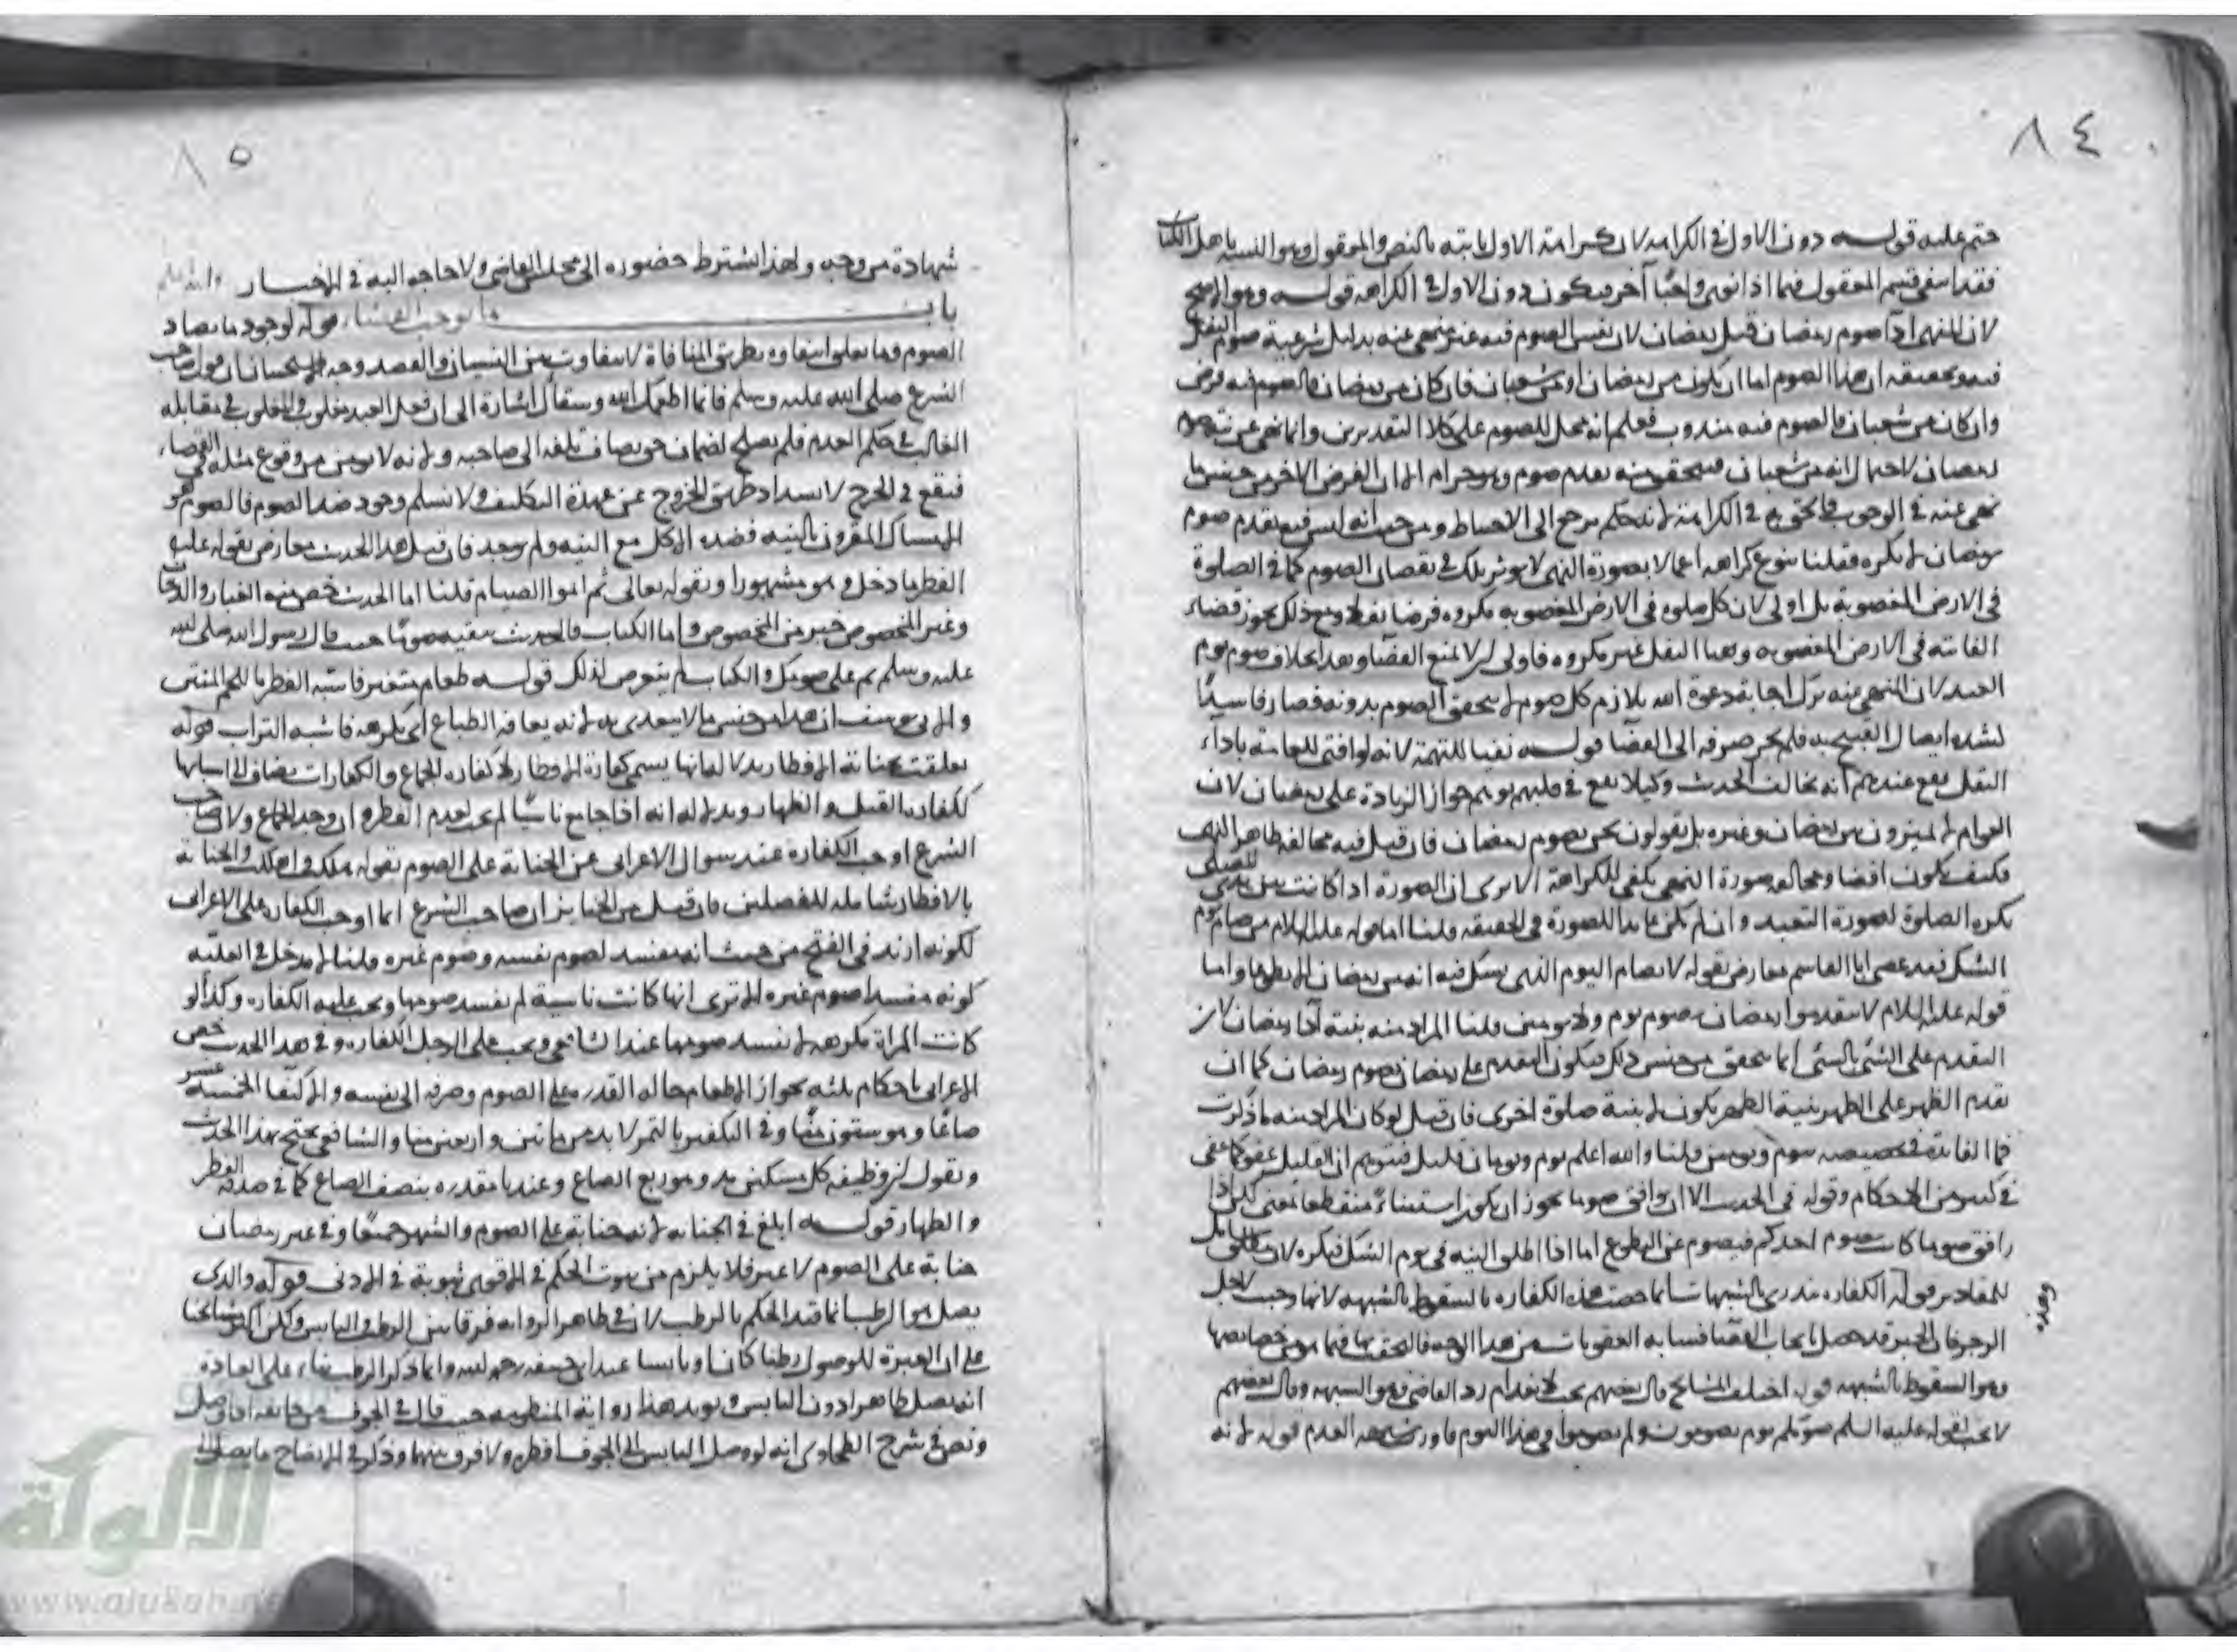 ٨٤
ختم عليه قوله دون الاول في الكراهية لان كراهة الاول ثابتة بالنص والمعقول وهو التشبه باهل الكتاب
فقد انتفى قسم المعقول فيما اذا نوى واجبا آخر فيكون دون الاول في الكراهة قوله وهو الاصح
لان المنهي اداء صوم رمضان قبل رمضان لان نفس الصوم فيه غير منهي عنه بدليل شرعية صوم النفل
فيه وتحقيقه ان هذا الصوم اما ان يكون من رمضان او من شعبان فان كان من رمضان فالصوم فيه فرض
وان كان من شعبان فالصوم فيه مندوب فعلم انه محل للصوم على كلا التقديرين وانما نهى عن نية صوم
رمضان لاحتمال انه من شعبان فيتحقق منه تقديم صوم وهو حرام الا ان الفرض الآخر من جنس ما
نهى عنه في الوجوب في الكراهة يرجع الى الاحتياط ومن حيث انه ليس فيه تقدم صوم
رمضان لا يكره فقلنا بنوع كراهة اعمالا بصورة النهي لا يوثر تلك في نقصان الصوم كما في الصلوة
في الارض المغصوبة بل اولى لان كل صلوة في الارض المغصوبة مكروه فرضا نفلا ومع ذلك يجوز قضاء
الفائتة في الارض المغصوبة وههنا النفل غير مكروه فاولى ان لا يمنع القضاء وهذا بخلاف صوم يوم
العيد لان المنهي عنه ترك اجابة دعوة الله يلازم كل صوم لا يتحقق الصوم بدونه فصار فاسدا
لشدة اتصال القبيح به فلم يجز صرفه الى القضاء قوله نفيا للتهمة لانه لو افتى للعامة باداء
النفل يقع عندهم انه يخالف الحديث وكيلا يقع في قلبهم توهم جواز الزيادة على رمضان لان
العوام لا يميزون بين رمضان وغيره بل يقولون نحن نصوم رمضان فان قيل فيه مخالفة ظاهر النهي
فكيف يكون افضل ومخالفة صورة النهي يكفي للكراهة الا يرى ان الصورة اذا كانت بين يدي المصلي
يكره الصلوة لصورة التعبد وان لم يكن عابدا للصورة في الحقيقة قلنا اما قوله عليه السلام من صام يوم
الشك فقد عصى ابا القاسم معارض بقوله لا يصام اليوم الذي يشك فيه انه من رمضان الا تطوعا واما
قوله عليه السلام لا تقدموا رمضان بصوم يوم ولا يومين قلنا المراد منه بنية اداء رمضان لان
التقدم على الشئ بالشئ انما يتحقق من جنس ذلك فيكون التقدم على رمضان بصوم رمضان كما ان
تقدم الظهر على الظهر بنية الظهر يكون لا بنية صلوة اخرى فان قيل لو كان المراد منه ما ذكرت
فما الفائدة في تخصيصه بيوم ويومين قلنا والله اعلم يوم ويومان قليل فيتوهم ان القليل عفو كما عفي
في كثير من الاحكام وقوله في الحديث الا ان يوافق صوما يجوز ان يكون استثناء منقطعا بمعنى لكن اذا
وافق صوما كان يصوم احدكم فيصوم عن التطوع اما اذا اطلق النية في يوم الشك فيكره لان
قوله الكفارة تندرئ بالشبهات انما خصت هذه الكفارة بالسقوط بالشبهة لانها وجبت لاجل
الزجر فان الجبر قد حصل بايجاب القضاء فشابه العقوبات من هذا الوجه فالتحقت بها فيما هو من خصائصها
وهو السقوط بالشبهة قوله اختلف المشايخ قال بعضهم يجب لانعدام رد القاضي وهو الشبهة وقال بعضهم
لا يجب لقوله عليه السلم صومكم يوم تصومون ولم يصوموا في هذا اليوم فاورث شبهة العدم قوله لانه
٨٥
شهادة من وجه ولهذا اشترط حضوره الى مجلس القاضي ولا حاجة اليه في الاخبار والله اعلم
باب ما يوجب القضاء قوله لوجود ما يضاد
الصوم وما يعلو انتفاؤه بطريق المنافاة لا يتفاوت بين النسيان والقصد وجه الاستحسان ان قول صاحب
الشرع صلى الله عليه وسلم فانما اطعمك الله وسقاك اشارة الى ان فعل العبد مغلوب والمغلوب في مقابلة
الغالب في حكم العدم فلم يصلح لضمان حق يضاف تلفه الى صاحبه ولانه لا يومن من وقوع مثله في القضاء
فيقع في الحرج لانسداد طريق الخروج عن عهدة التكليف ولا نسلم وجود ضد الصوم فالصوم هو
الامساك المقرون بالنية فضده الاكل مع النية ولم يوجد فان قيل هذا الحديث معارض بقوله عليه
الفطر مما دخل وهو مشهور او بقوله تعالى ثم اتموا الصيام قلنا اما الحديث خص منه الغبار والدخان
وغير المخصوص خير من المخصوص واما الكتاب فالحديث بقيه صوما حيث قال رسول الله صلى الله
عليه وسلم تم على صومك والكتاب لم يتعرض لذلك قوله طعام متغير فاشبه الفطر باللحم المنتن
ولابي يوسف ان هذا من جنس ما لا يتغذى به لانه يعافه الطباع اي يكرهه فاشبه التراب قوله
تعلقت بجناية الافطار يدل انها يسمى كفارة الافطار لا كفارة الجماع والكفارات يضاف الى اسبابها
ككفارة القتل والظهار ويدل له انه اذا جامع ناسيا لم يجب لعدم الفطر وان وجد الجماع ولان صاحب
الشرع اوجب الكفارة عند سوال الاعرابي عن الجناية على الصوم بقوله هلكت واهلكت والجناية
بالافطار شاملة للفصلين فان قيل من الجائز ان صاحب الشرع انما اوجب الكفارة على الاعرابي
لكونه ازيد في القبح من حيث انه مفسد لصوم نفسه وصوم غيره قلنا لا مدخل في العلية
كونه مفسدا صوم غيره الا ترى انها كانت ناسية لم يفسد صومها ويجب عليه الكفارة وكذا لو
كانت المراة مكرهة لا يفسد صومها عند الشافعي ويجب على الرجل الكفارة وفي هذا الحديث خص
الاعرابي باحكام ثلثة بجواز الاطعام حالة القدرة على الصوم وصرفه الى نفسه والاكتفاء الخمسة عشر
صاعا وهو ستون منا وفي التكفير بالتمر لا بد من مائتين واربعين منا والشافعي يحتج بهذا الحديث
ويقول ان وظيفة كل مسكين مد وهو ربع الصاع وعندنا مقدره بنصف الصاع كما في صدقة الفطر
والظهار قوله ابلغ في الجناية لانه جناية على الصوم والشهر جميعا وفي غير رمضان
جناية على الصوم لا غير فلا يلزم من ثبوت الحكم في الاقوى ثبوته في الادنى قوله والذي
يصل هو الرطب انما قيد الحكم بالرطب لان في ظاهر الرواية فرقا بين الرطب واليابس ولكن اكثر مشايخنا
على ان العبرة للوصول رطبا كان او يابسا عند ابي حنيفة رحمه الله وانما ذكر الرطب بناء على العادة
انه يصل ظاهرا دون اليابس ويويد هذا رواية المنظومة حيث قال في الجوف
ونص في شرح الطحاوي انه لو وصل اليابس الى الجوف افطره ولا فرق بينهما وذكر في الايضاح ما يصل الى
الالوكة
www.alukah.net